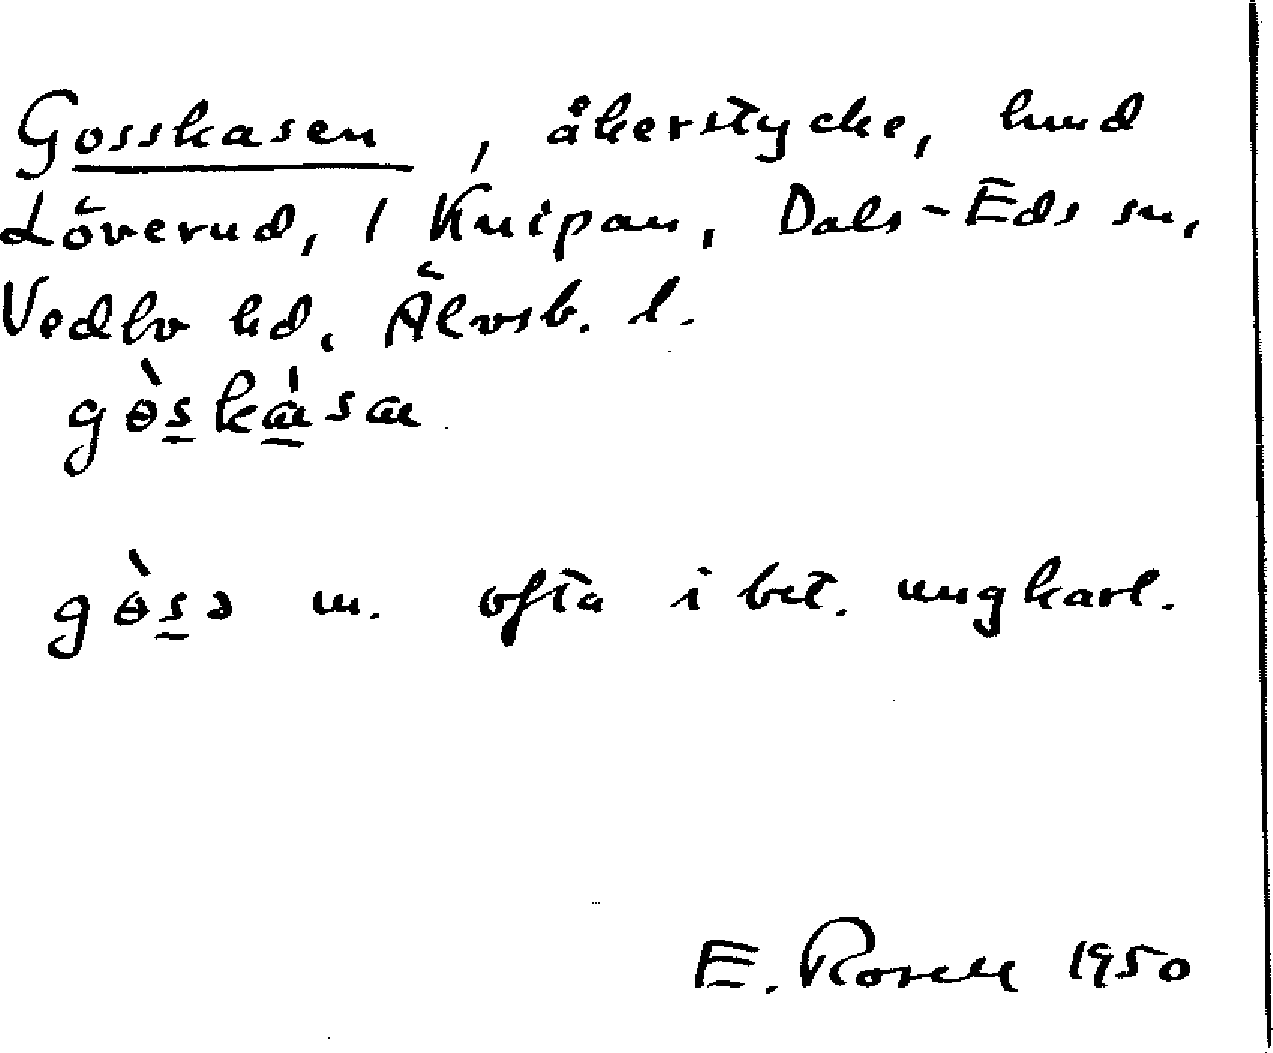 Gosskasen, åkerstycke, hmd
Löverud, 1 Knipan, Dals-Eds sn,
Vedbo hd, Älvsb. l.
gɵ̀s̠kɑ̠̀sɑ
gɵ̀s̠ə m. ofta i bet. ungkarl.
E. Rosell 1950